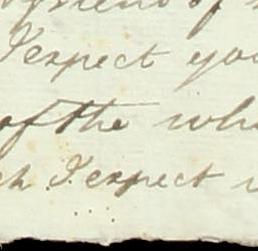 of
I expect you
of the whi
ch I expect